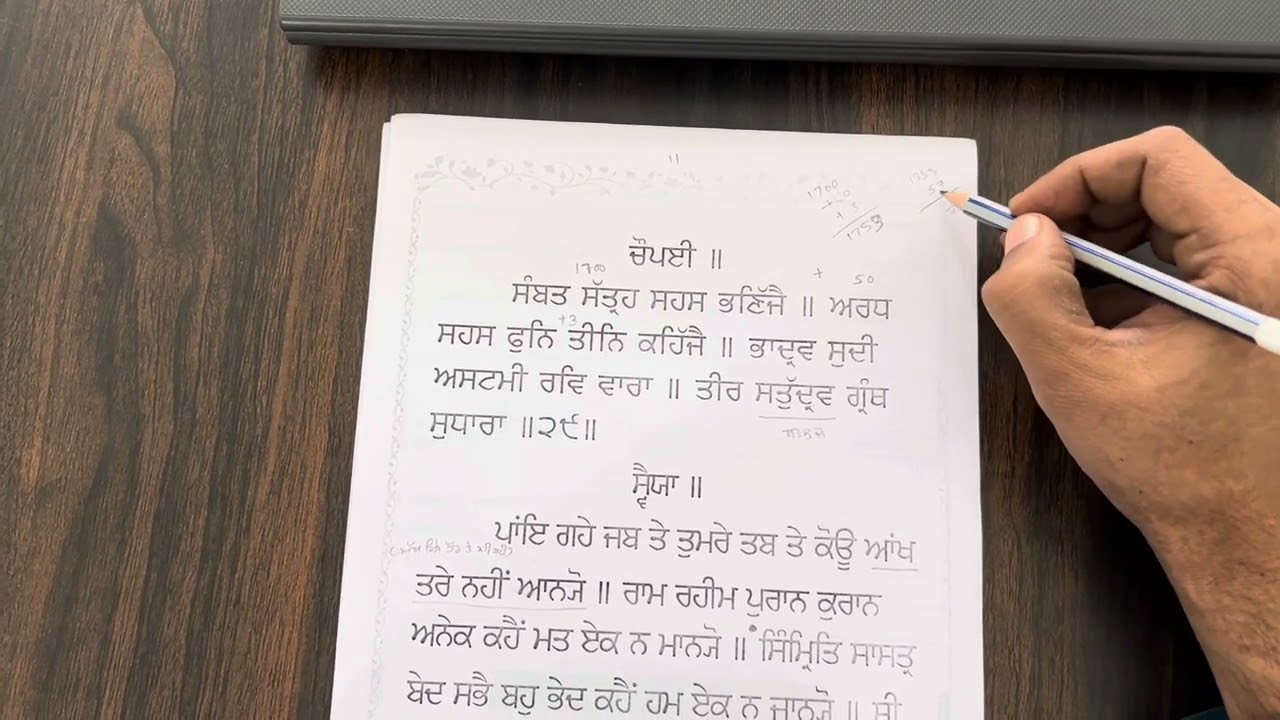 ੧੧
1700
+50
+ 3
1753
1753
57
ਚੌਪਈ ॥
1700 + 50
ਸੰਬਤ ਸੱਤ੍ਰਹ ਸਹਸ ਭਣਿੱਜੈ ॥ ਅਰਧ
+3
ਸਹਸ ਫੁਨਿ ਤੀਨਿ ਕਹਿੱਜੈ ॥ ਭਾਦ੍ਰਵ ਸੁਦੀ
ਅਸਟਮੀ ਰਵਿ ਵਾਰਾ ॥ ਤੀਰ ਸਤੁੱਦ੍ਰਵ ਗ੍ਰੰਥ
ਸਤਲੁਜ
ਸੁਧਾਰਾ ॥੨੯॥
ਸ੍ਵੈਯਾ ॥
ਪਾਂਇ ਗਹੇ ਜਬ ਤੇ ਤੁਮਰੇ ਤਬ ਤੇ ਕੋਊ ਆਂਖ
ਤਰੇ ਨਹੀਂ ਆਨਯੋ ॥ ਰਾਮ ਰਹੀਮ ਪੁਰਾਨ ਕੁਰਾਨ
ਅਨੇਕ ਕਹੈਂ ਮਤ ਏਕ ਨ ਮਾਨਯੋ ॥ ਸਿੰਮ੍ਰਿਤਿ ਸਾਸਤ੍ਰ
ਬੇਦ ਸਭੈ ਬਹੁ ਭੇਦ ਕਹੈਂ ਹਮ ਏਕ ਨ ਜਾਨਯੋ ॥ ਸ੍ਰੀ